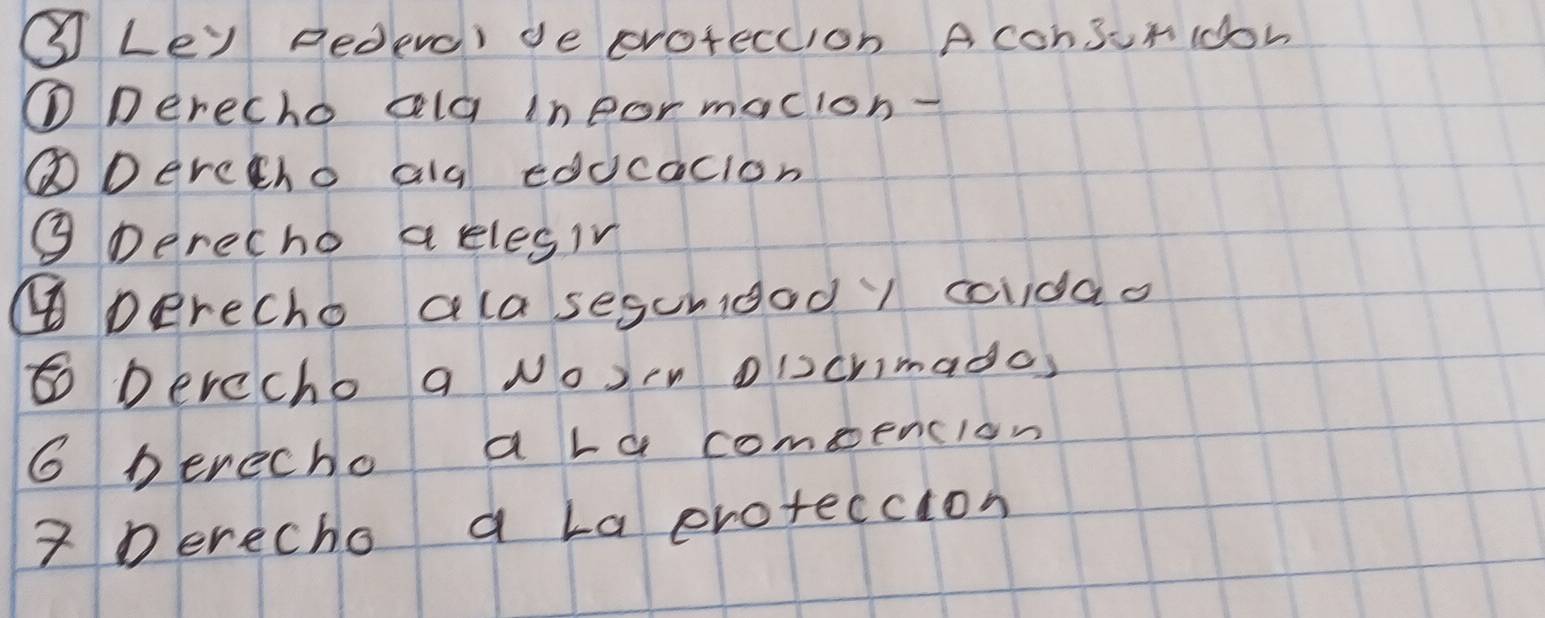 ③ Ley Federal de proteccion A consumidor
① Derecho ala informacion-
② Derecho ala educacion
③ Derecho a elegir
④ Derecho ala seguridad y calidad
⑤ Derecho a No ser Discrimados
6 Derecho a La compencion
7 Derecho a La proteccion